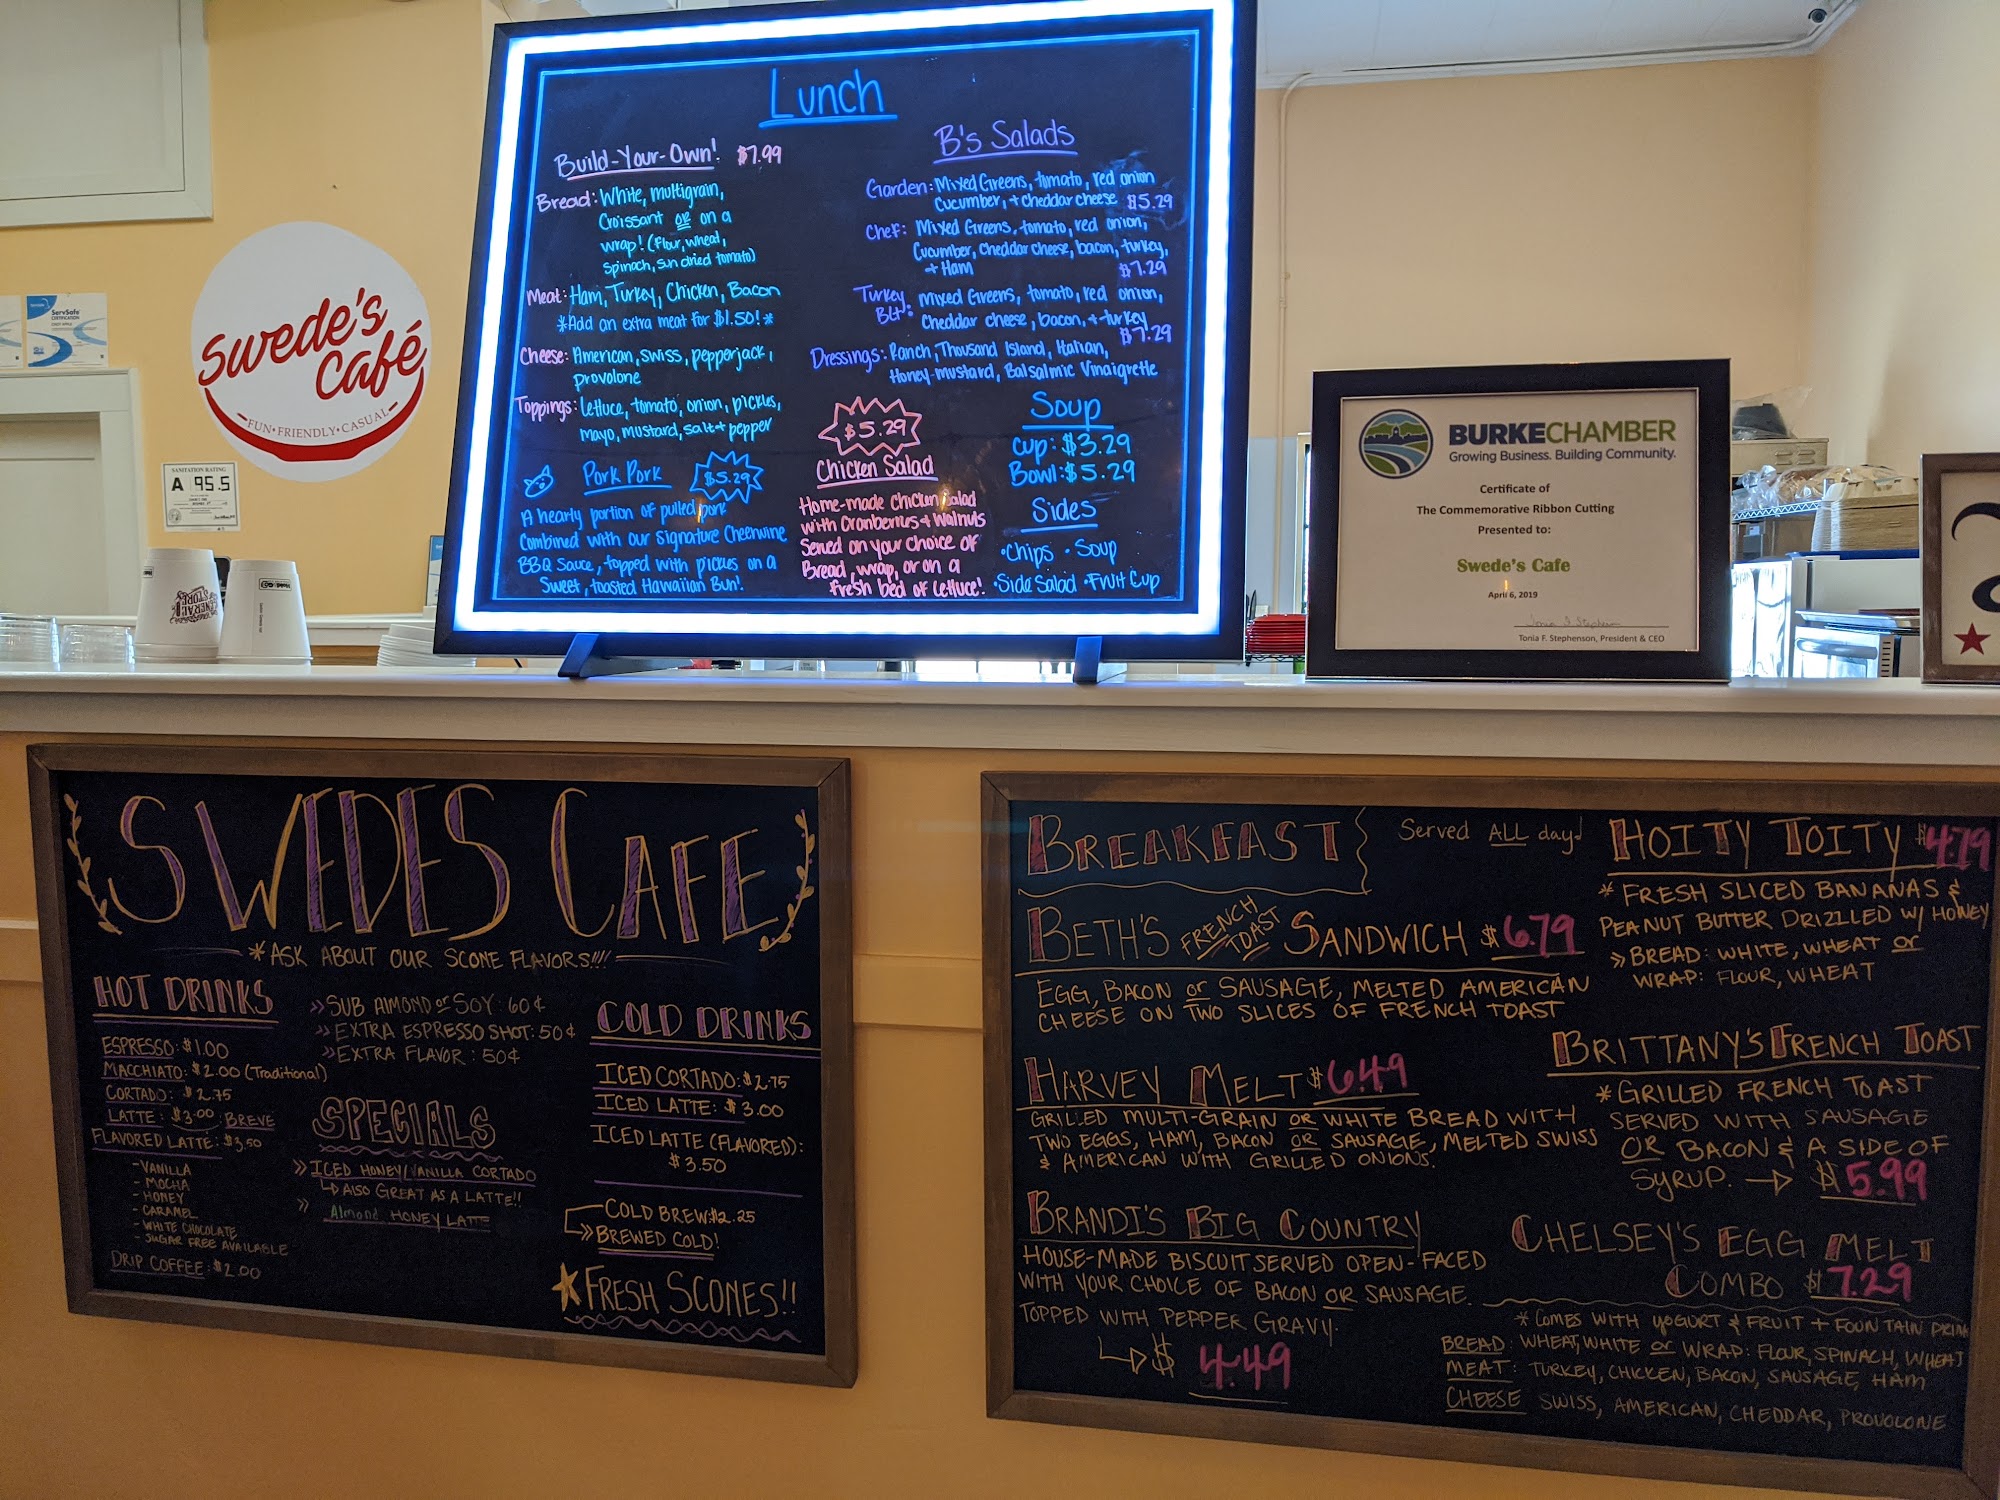 Lunch
Build-Your-Own! $7.99
Bread: White, multigrain,
Croissant or on a
wrap! (flour, wheat,
spinach, sun dried tomato)
Meat: Ham, Turkey, Chicken, Bacon
*Add an extra meat for $1.50!*
Cheese: American, swiss, pepperjack,
provolone
Toppings: lettuce, tomato, onion, pickles,
mayo, mustard, salt + pepper
Pork Pork $5.29
A hearty portion of pulled pork
Combined with our signature Cheerwine
BBQ Sauce, topped with pickles on a
Sweet, toasted Hawaiian Bun!
B's Salads
Garden: Mixed Greens, tomato, red onion
Cucumber, + cheddar cheese $5.29
Chef: Mixed Greens, tomato, red onion,
Cucumber, cheddar cheese, bacon, turkey,
+ Ham $7.29
Turkey BLT: Mixed Greens, tomato, red onion,
Cheddar cheese, bacon, + turkey
$7.29
Dressings: Ranch, Thousand Island, Italian,
Honey-mustard, Balsalmic Vinaigrette
$5.29
Chicken Salad
Home-made chicken salad
with Cranberries + Walnuts
Served on your choice of
Bread, wrap, or on a
fresh bed of lettuce!
Soup
Cup: $3.29
Bowl: $5.29
Sides
•Chips •Soup
•Side Salad •Fruit Cup
Swede's
Café
-FUN•FRIENDLY•CASUAL-
ServSafe
CERTIFICATION
SANITATION RATING
A 95.5
GENERAL
STORE
BURKECHAMBER
Growing Business. Building Community.
Certificate of
The Commemorative Ribbon Cutting
Presented to:
Swede's Cafe
April 6, 2019
Tonia F. Stephenson, President & CEO
SWEDES CAFE
*ASK ABOUT OUR SCONE FLAVORS!!!
HOT DRINKS
ESPRESSO: $1.00
MACCHIATO: $2.00 (Traditional)
CORTADO: $2.75
LATTE: $3.00 BREVE
FLAVORED LATTE: $3.50
- VANILLA
- MOCHA
- HONEY
- CARAMEL
- WHITE CHOCOLATE
- SUGAR FREE AVAILABLE
DRIP COFFEE: $2.00
>>SUB ALMOND or SOY: 60¢
>>EXTRA ESPRESSO SHOT: 50¢
>>EXTRA FLAVOR: 50¢
SPECIALS
>>ICED HONEY/VANILLA CORTADO
↳ ALSO GREAT AS A LATTE!!
>> Almond HONEY LATTE
COLD DRINKS
ICED CORTADO: $2.75
ICED LATTE: $3.00
ICED LATTE (FLAVORED):
$3.50
COLD BREW: $2.25
>>BREWED COLD!
FRESH SCONES!!
BREAKFAST Served ALL day!
BETH'S FRENCH TOAST SANDWICH $6.79
EGG, BACON or SAUSAGE, MELTED AMERICAN
CHEESE ON TWO SLICES OF FRENCH TOAST
HARVEY MELT $6.49
GRILLED MULTI-GRAIN OR WHITE BREAD WITH
TWO EGGS, HAM, BACON OR SAUSAGE, MELTED SWISS
& AMERICAN WITH GRILLED ONIONS.
BRANDI'S BIG COUNTRY
HOUSE-MADE BISCUIT SERVED OPEN-FACED
WITH YOUR CHOICE OF BACON OR SAUSAGE.
TOPPED WITH PEPPER GRAVY.
↳ $4.49
HOITY TOITY $4.79
* FRESH SLICED BANANAS &
PEANUT BUTTER DRIZZLED W/ HONEY
>> BREAD: WHITE, WHEAT or
WRAP: FLOUR, WHEAT
BRITTANY'S FRENCH TOAST
*GRILLED FRENCH TOAST
SERVED WITH SAUSAGE
OR BACON & A SIDE OF
SYRUP. → $5.99
CHELSEY'S EGG MELT
COMBO $7.29
* COMES WITH YOGURT & FRUIT + FOUNTAIN DRINK
BREAD: WHEAT, WHITE or WRAP: FLOUR, SPINACH, WHEAT
MEAT: TURKEY, CHICKEN, BACON, SAUSAGE, HAM
CHEESE SWISS, AMERICAN, CHEDDAR, PROVOLONE